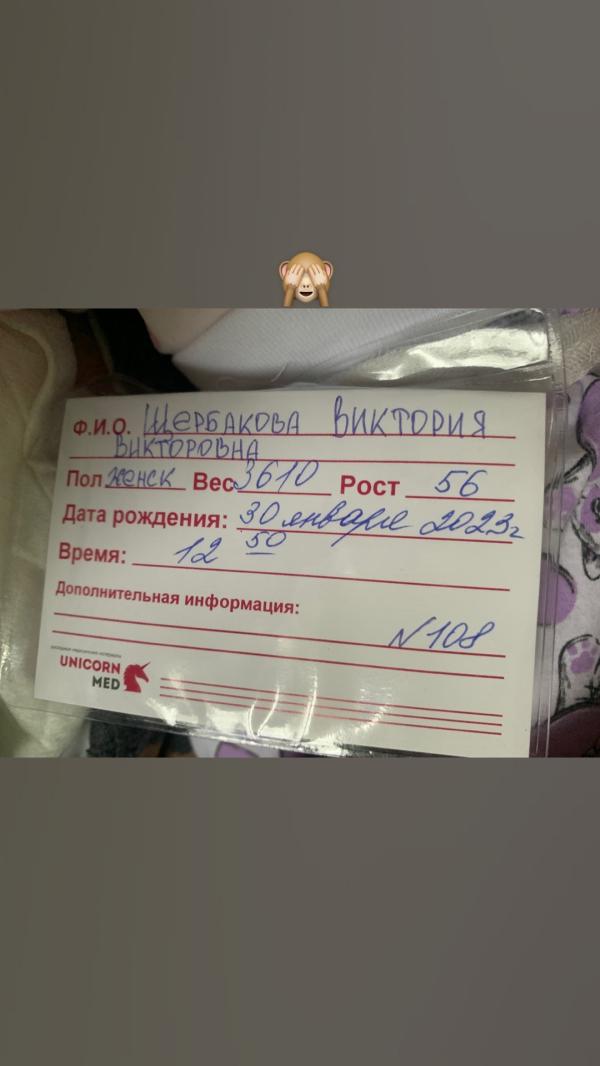 Ф.И.О. ЩЕРБАКОВА ВИКТОРИЯ
ВИКТОРОВНА
Пол женск Вес 3610 Рост 56
Дата рождения: 30 января 2023г
Время: 12 50
Дополнительная информация:
N108
расходные медицинские материалы
UNICORN
MED